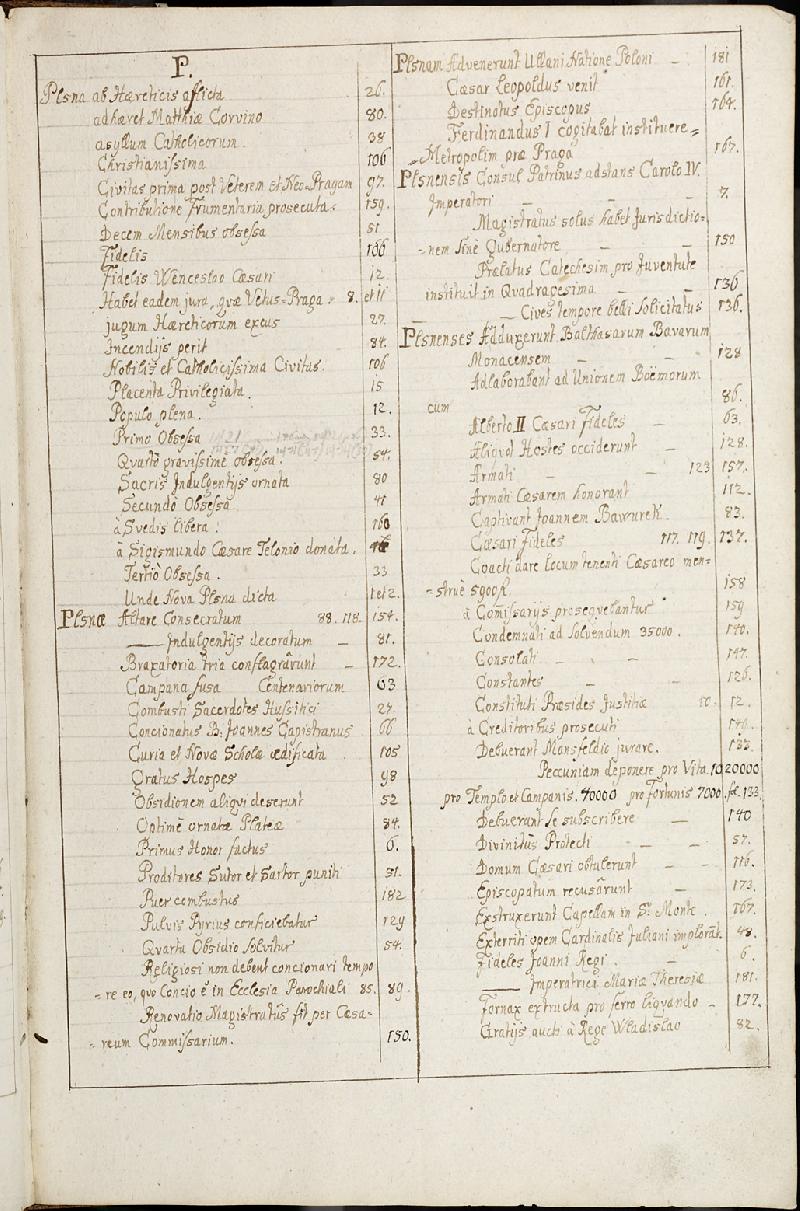 P.
Plsna ab Hæreticis aflicta 26.
adhæret Matthiæ Corvino 80.
asyllum Catholicorum 38
Christianissima 106
Civitas prima post Veterem et Neo-Pragam 97.
Contributione Frumentaria prosecuta. 159.
Decem Mensibus obsessa 51
Fidelis 106
Fidelis Wenceslao Cæsari 12
Habet eadem jura, quæ Vetus-Praga 8. et 11
jugum Hæreticorum excus 27.
Incendijs perit 84.
Nobilis et Catholicissima Civitas. 106
Placenta Privilegiata. 15
Populo plena. 12.
Primo Obsessa 33.
Qvartò gravissime obsessa. 54.
Sacris Indulgentijs ornata 80
Secundò Obsessa 41
à Svedis libera. 160
à Sigismundo Cæsare Telonio donata.
Tertiò Obsessa. 33
Unde Nova Plsna dicta 1 et 2
Plsnæ Altare Consecratum 88. 118. 154.
Indulgentijs decoratum — 81.
Braxatoria tria conflagrârunt — 172.
Campana fusa Centenariorum 63
Combusti Sacerdotes Hussitici 27
Concionatus B: Joannes Capistranus 66
Curia et Novæ Scholæ ædificata 105
Gratus Hospes 98
Obsidionem aliqvi deserunt 52
Optimè ornatæ Plateæ 84.
Primus Honor factus 6.
Proditores Sutor et Sartor puniti 31.
Puer combustus 182
Pulvis Pyrius conficiebatur 129
Qvarta Obsidio solvitur 54.
Religiosi non debent concionari tempo
= re eo, qvo Concio è in Ecclesia Parochiali 85. 89.
Renovatio Magistratûs fit per Cæsa-
= reum Commissarium. 150.
Plsnam Advenerunt Ullani Natione Poloni — 181
Cæsar Leopoldus venit 161.
Destinatus Episcopus 164.
Ferdinandus I cogitabat instituere =
= Metropolim præ Praga 167.
Plsnensis Consul Patrinus adstans Carolo IV.
Imperatori — — 7.
Magistratus solus habet Juris dictio=
= nem sine Gubernatore — — 150
Prælatus Catechesim pro Juventute
instituit in Qvadragesima — — 136
Cives tempore belli solicitatus 136.
Plsnenses Adduxerunt Balthasarum Bavarum
Monacensem — — 128
Adlaborabant ad Unionem Boëmorum
cum 86.
Alberto II Cæsari Fideles — 63.
Aliqvot Hostes occiderunt — 128.
Armati — — 123 157.
Armati Cæsarem honorant 112.
Captivant Joannem Bawurek. 83.
Cæsari Fideles 117. 119. 137.
Coacti dare locum tenenti Cæsareo men=
= struè 5900 fl 158
à Commissarijs proseqvebantur 159
Condemnati ad solvendum 35000. 140.
Consolati — — 147.
Constantes — — 126.
Constituti Præsides Justitiæ 10. 12.
à Creditoribus prosecuti 140.
Debuerant Mansfeldio jurare. 133.
Pecuniam deponere pro Vita. 1020000
pro Templo et Campanis. 40000 pro fortunis 7000. fol. 133.
Debuerant se subscribere — 140
Divinitûs Protecti — — 57.
Domum Cæsari obtulerunt — 116.
Episcopatum recusârunt — 173.
Exstruxerunt Capellam in S. Monte. 167.
Exterriti opem Cardinalis Juliani implorât. 48.
Fideles Joanni Regi. — 6.
Imperatrici Mariæ Theresiæ 181.
Fornax extructa pro ferro liqvando — 177.
Gratijs aucti à Rege Wladislao 82.